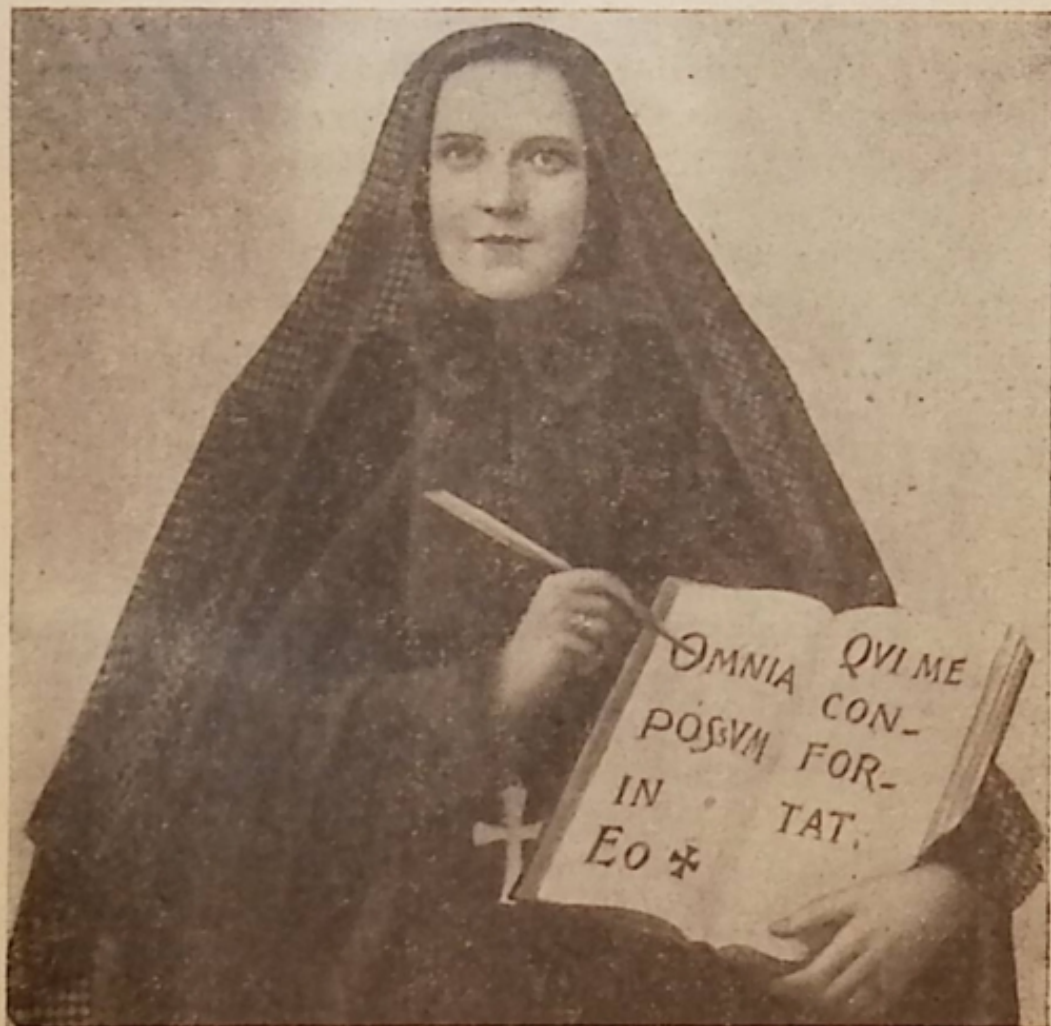 OMNIA
POSSVM
IN
EO ✠
QVI ME
CON-
FOR-
TAT.